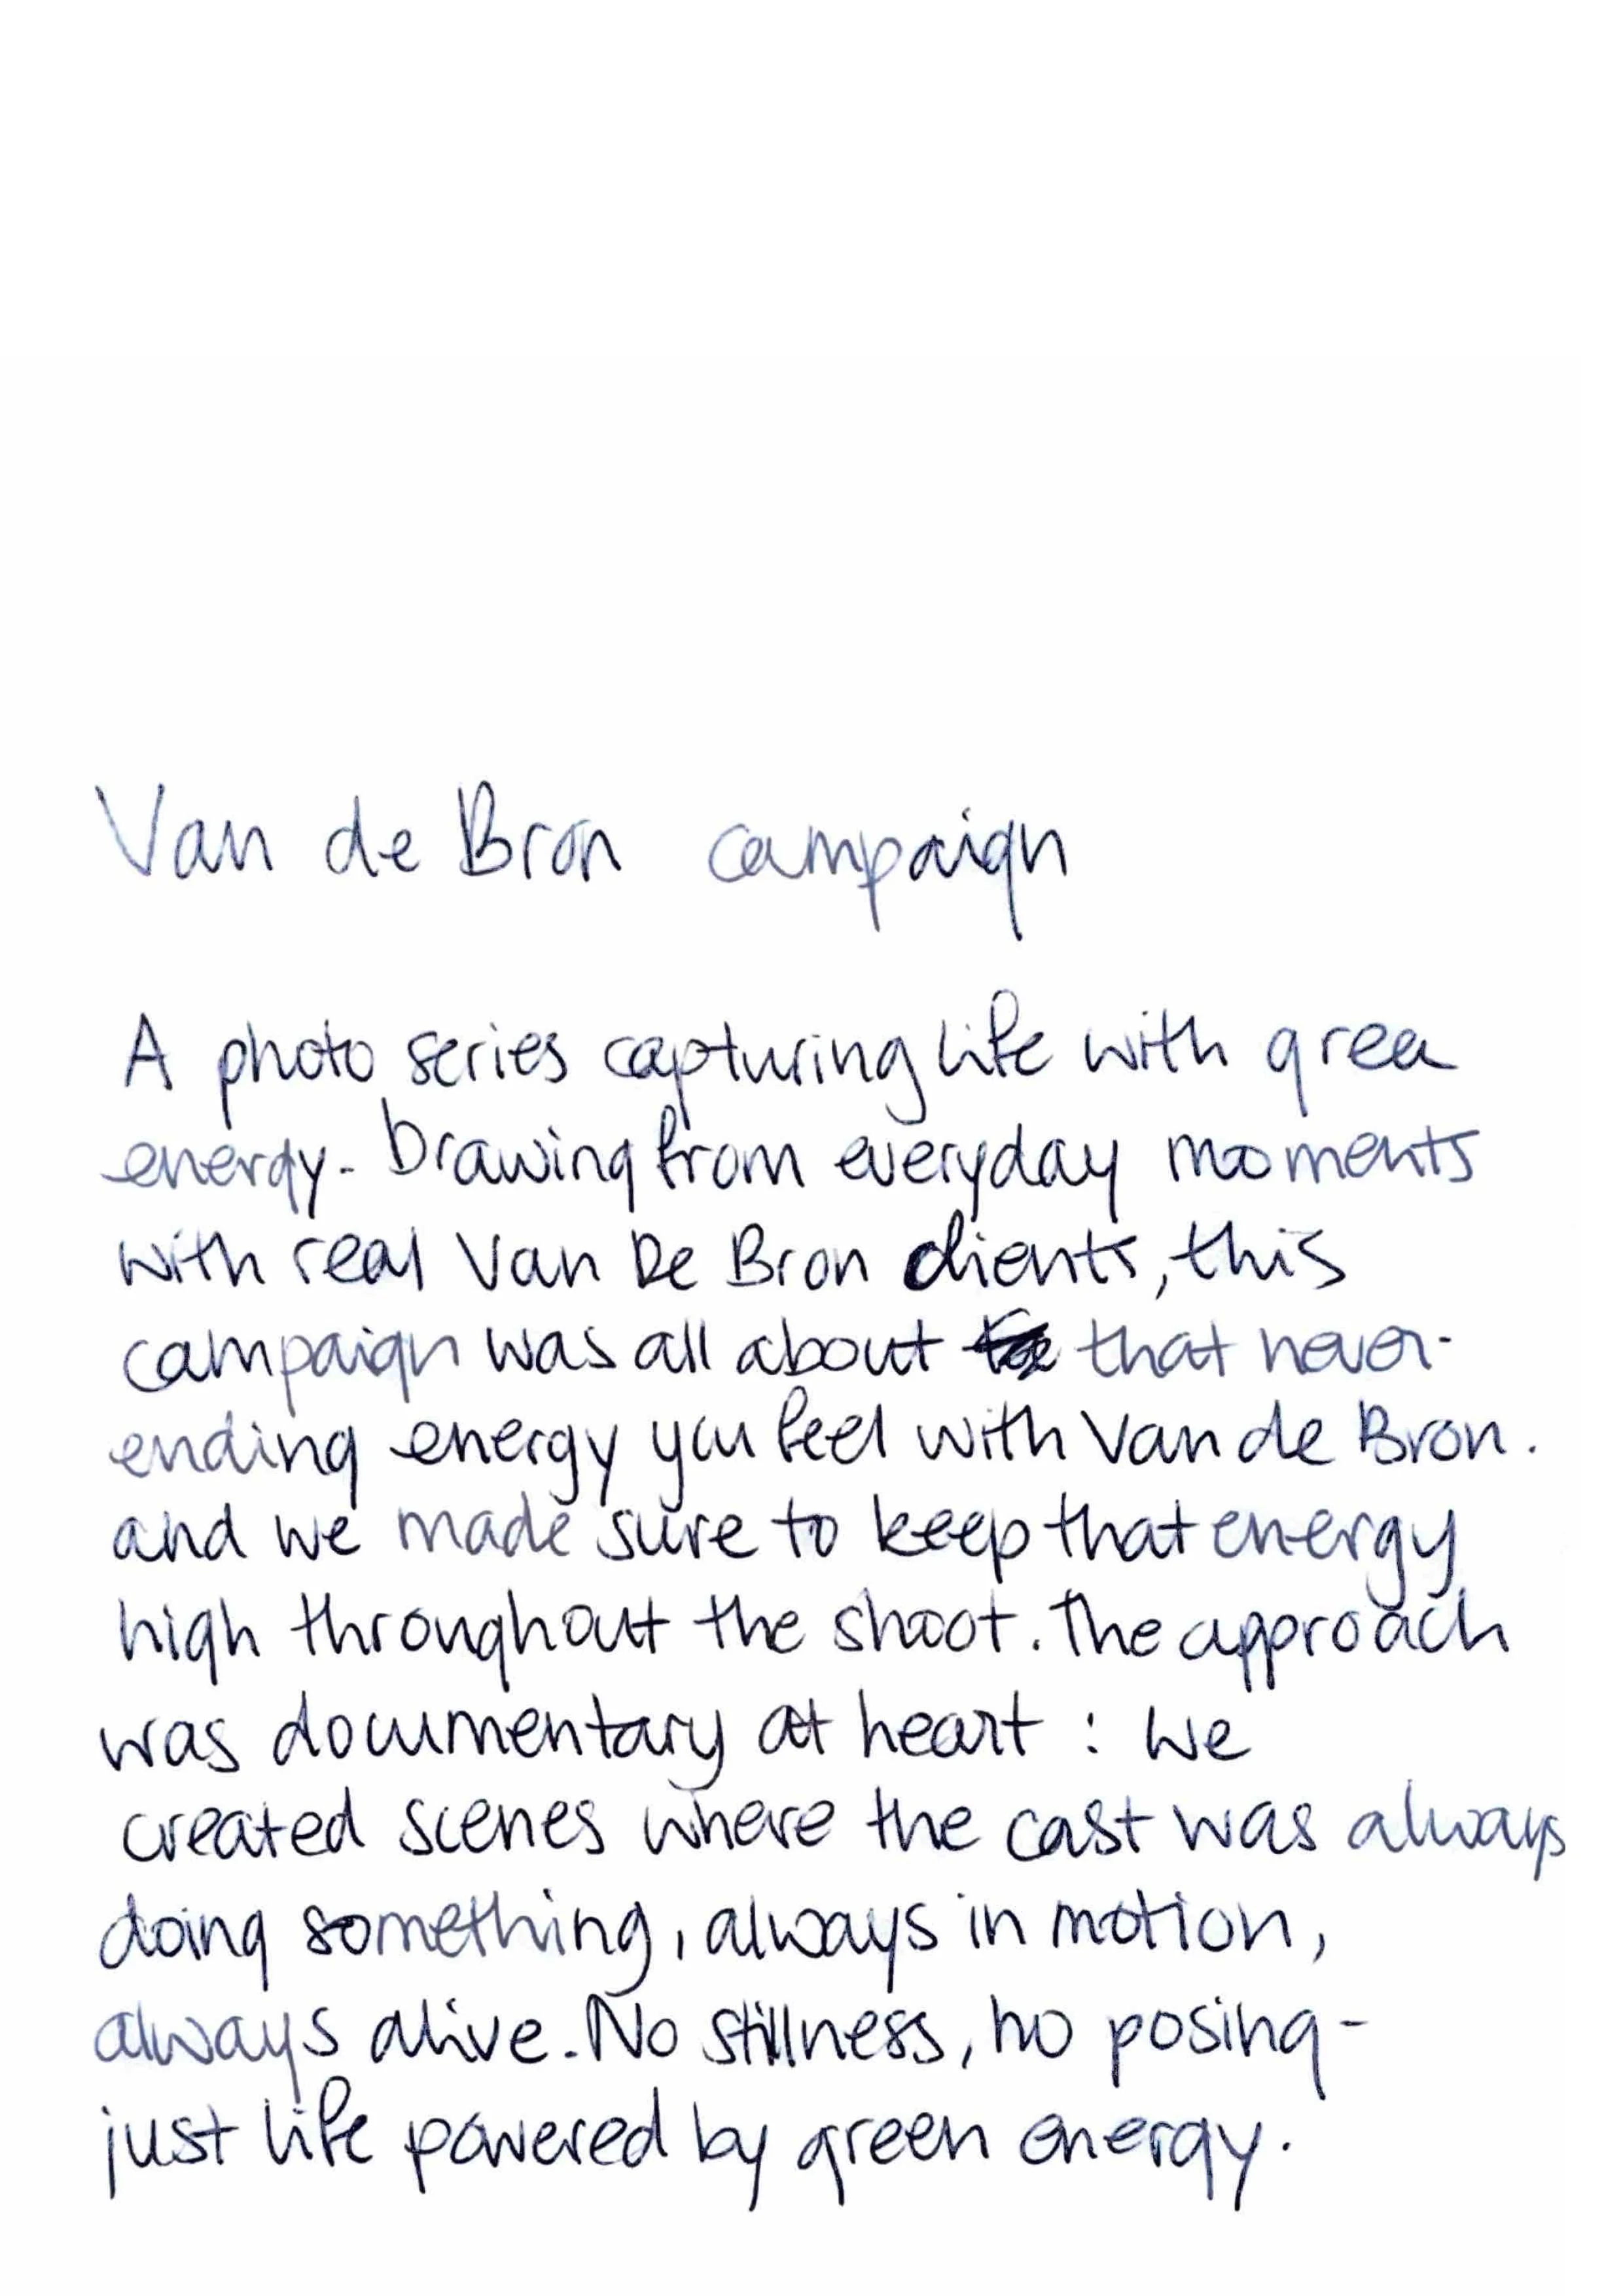 Van de Bron campaign
A photo series capturing life with green
energy. Drawing from everyday moments
with real Van De Bron clients, this
campaign was all about that never-
ending energy you feel with Van de Bron.
and we made sure to keep that energy
high throughout the shoot. The approach
was documentary at heart : We
created scenes where the cast was always
doing something, always in motion,
always alive. No stillness, no posing -
just life powered by green energy.